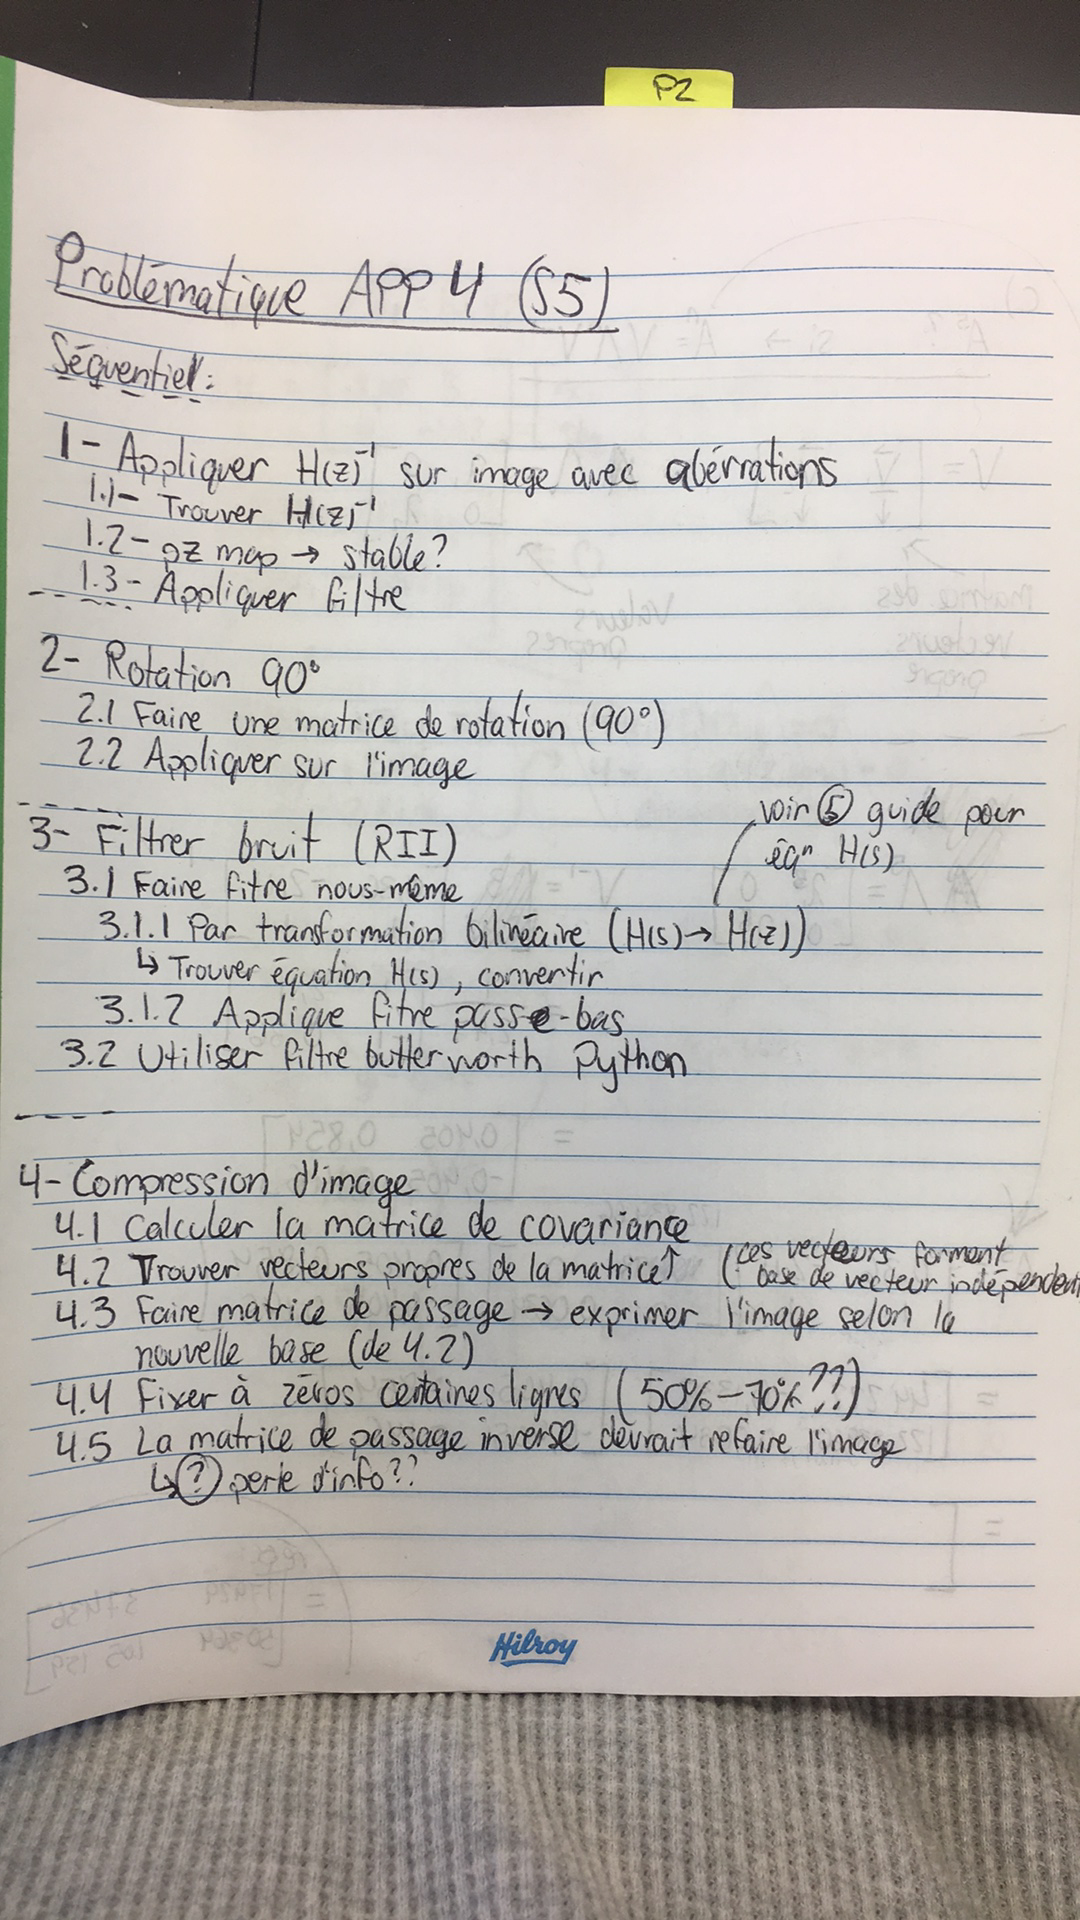 P2
Problématique APP 4 (S5)
Séquentiel:
1- Appliquer H(z)⁻¹ sur image avec abérrations
1.1- Trouver H(z)⁻¹
1.2- pz map → stable?
1.3- Appliquer filtre
2- Rotation 90°
2.1 Faire une matrice de rotation (90°)
2.2 Appliquer sur l'image
3- Filtrer bruit (RII)
voir ⑤ guide pour
éqⁿ H(s)
3.1 Faire fitre nous-même
3.1.1 Par transformation bilinéaire (H(s) → H(z))
↳ Trouver équation H(s), convertir
3.1.2 Applique fitre passe-bas
3.2 Utiliser filtre butterworth Python
4- Compression d'image
4.1 Calculer la matrice de covariance
4.2 Trouver vecteurs propres de la matrice↑ (ces vecteurs forment
base de vecteur indépendent
4.3 Faire matrice de passage → exprimer l'image selon la
nouvelle base (de 4.2)
4.4 Fixer à zéros certaines lignes (50%-70%??)
4.5 La matrice de passage inverse devrait refaire l'image
↳(?) perte d'info??
Hilroy